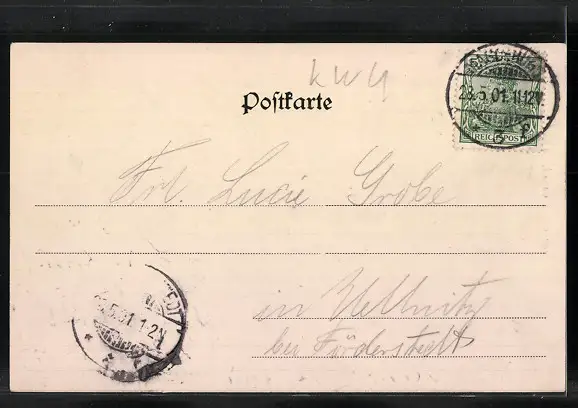 Postkarte
23.5.01. 11-12V
REICHSPOST
Frl. Lucie Grobe
in Üllnitz
bei Förderstedt
.5.01. 1-2N